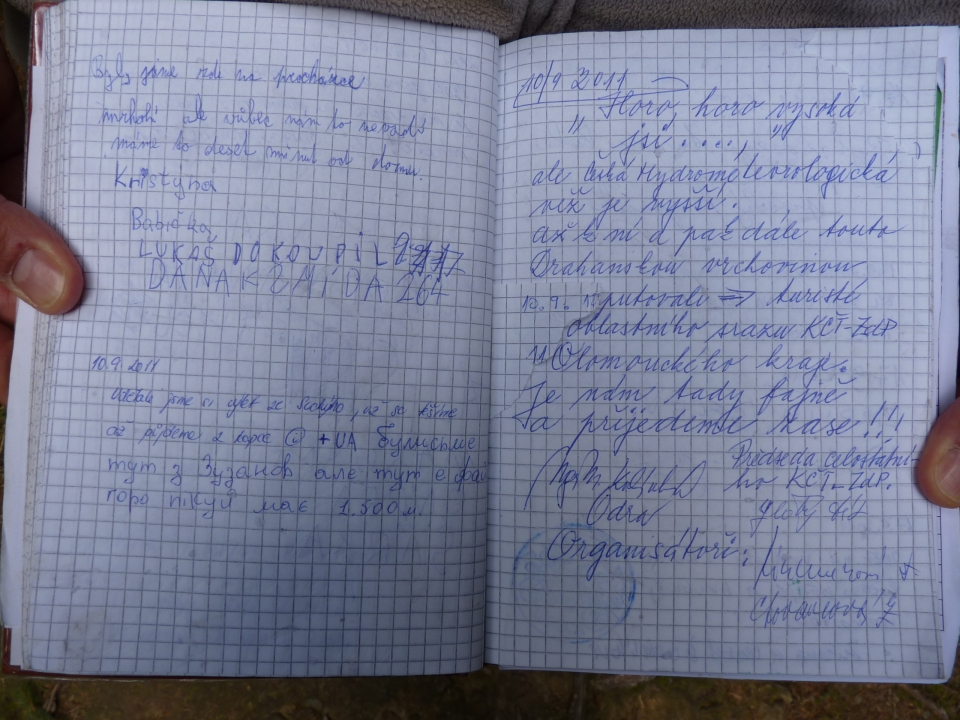 Byly jsme zde na procházce
mrholí ale vůbec nám to nevadí
máme to deset minut od domu.
Kristýna
Babička
LUKÁŠ DOKOUPIL
DANA KZMÍDA 264
10.9.2011
jsme si výlet ze
až půjdeme z kopce + UA Були сьме
тут з Зузанов але тут є фай
горо пікуй має 1.500м.
10/9 2011
" Horo, horo vysoká
jsi . . . . , "
ale Česká Hydrometeorologická
věž je vyšší.
Až k ní a pak dále touto
Drahanskou vrchovinou
10.9. putovali => turisté
oblastního srazu KČT-ZdP
Olomouckého kraje.
Je nám tady fajně
a přijedeme zase!!!
Předseda celostátní-
ho KČT-ZdP.
Odra
Organisátoři: